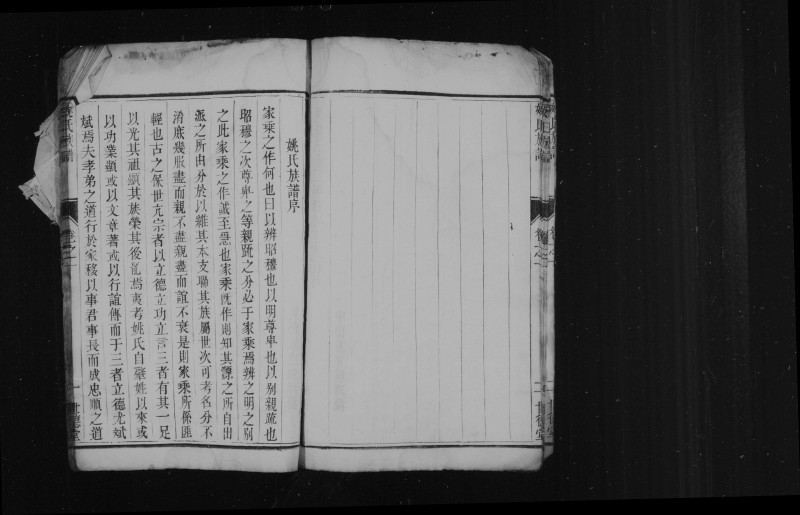 姚氏族譜序
家乘之作何也曰以辨昭穆也以明尊卑也以别親疏也
昭穆之次尊卑之等親疏之分必于家乘焉辨之明之别
之此家乘之作誠至急也家乘旣作則知其源之所自出
派之所由分於以維其本支聯其族屬世次可考名分不
淆底幾服盡而親不盡親盡而誼不衰是則家乘所係匪
輕也古之保世亢宗者以立德立功立言三者有其一足
以光其祖顯其族榮其後焉考姚氏自肇姓以來或
以功業顯或以文章著或以行誼傳而于三者立德尤斌
斌焉夫孝弟之道行於家移以事君事長而成忠順之道
卷之一
一 世德堂
姚氏族譜
卷之一
世德堂